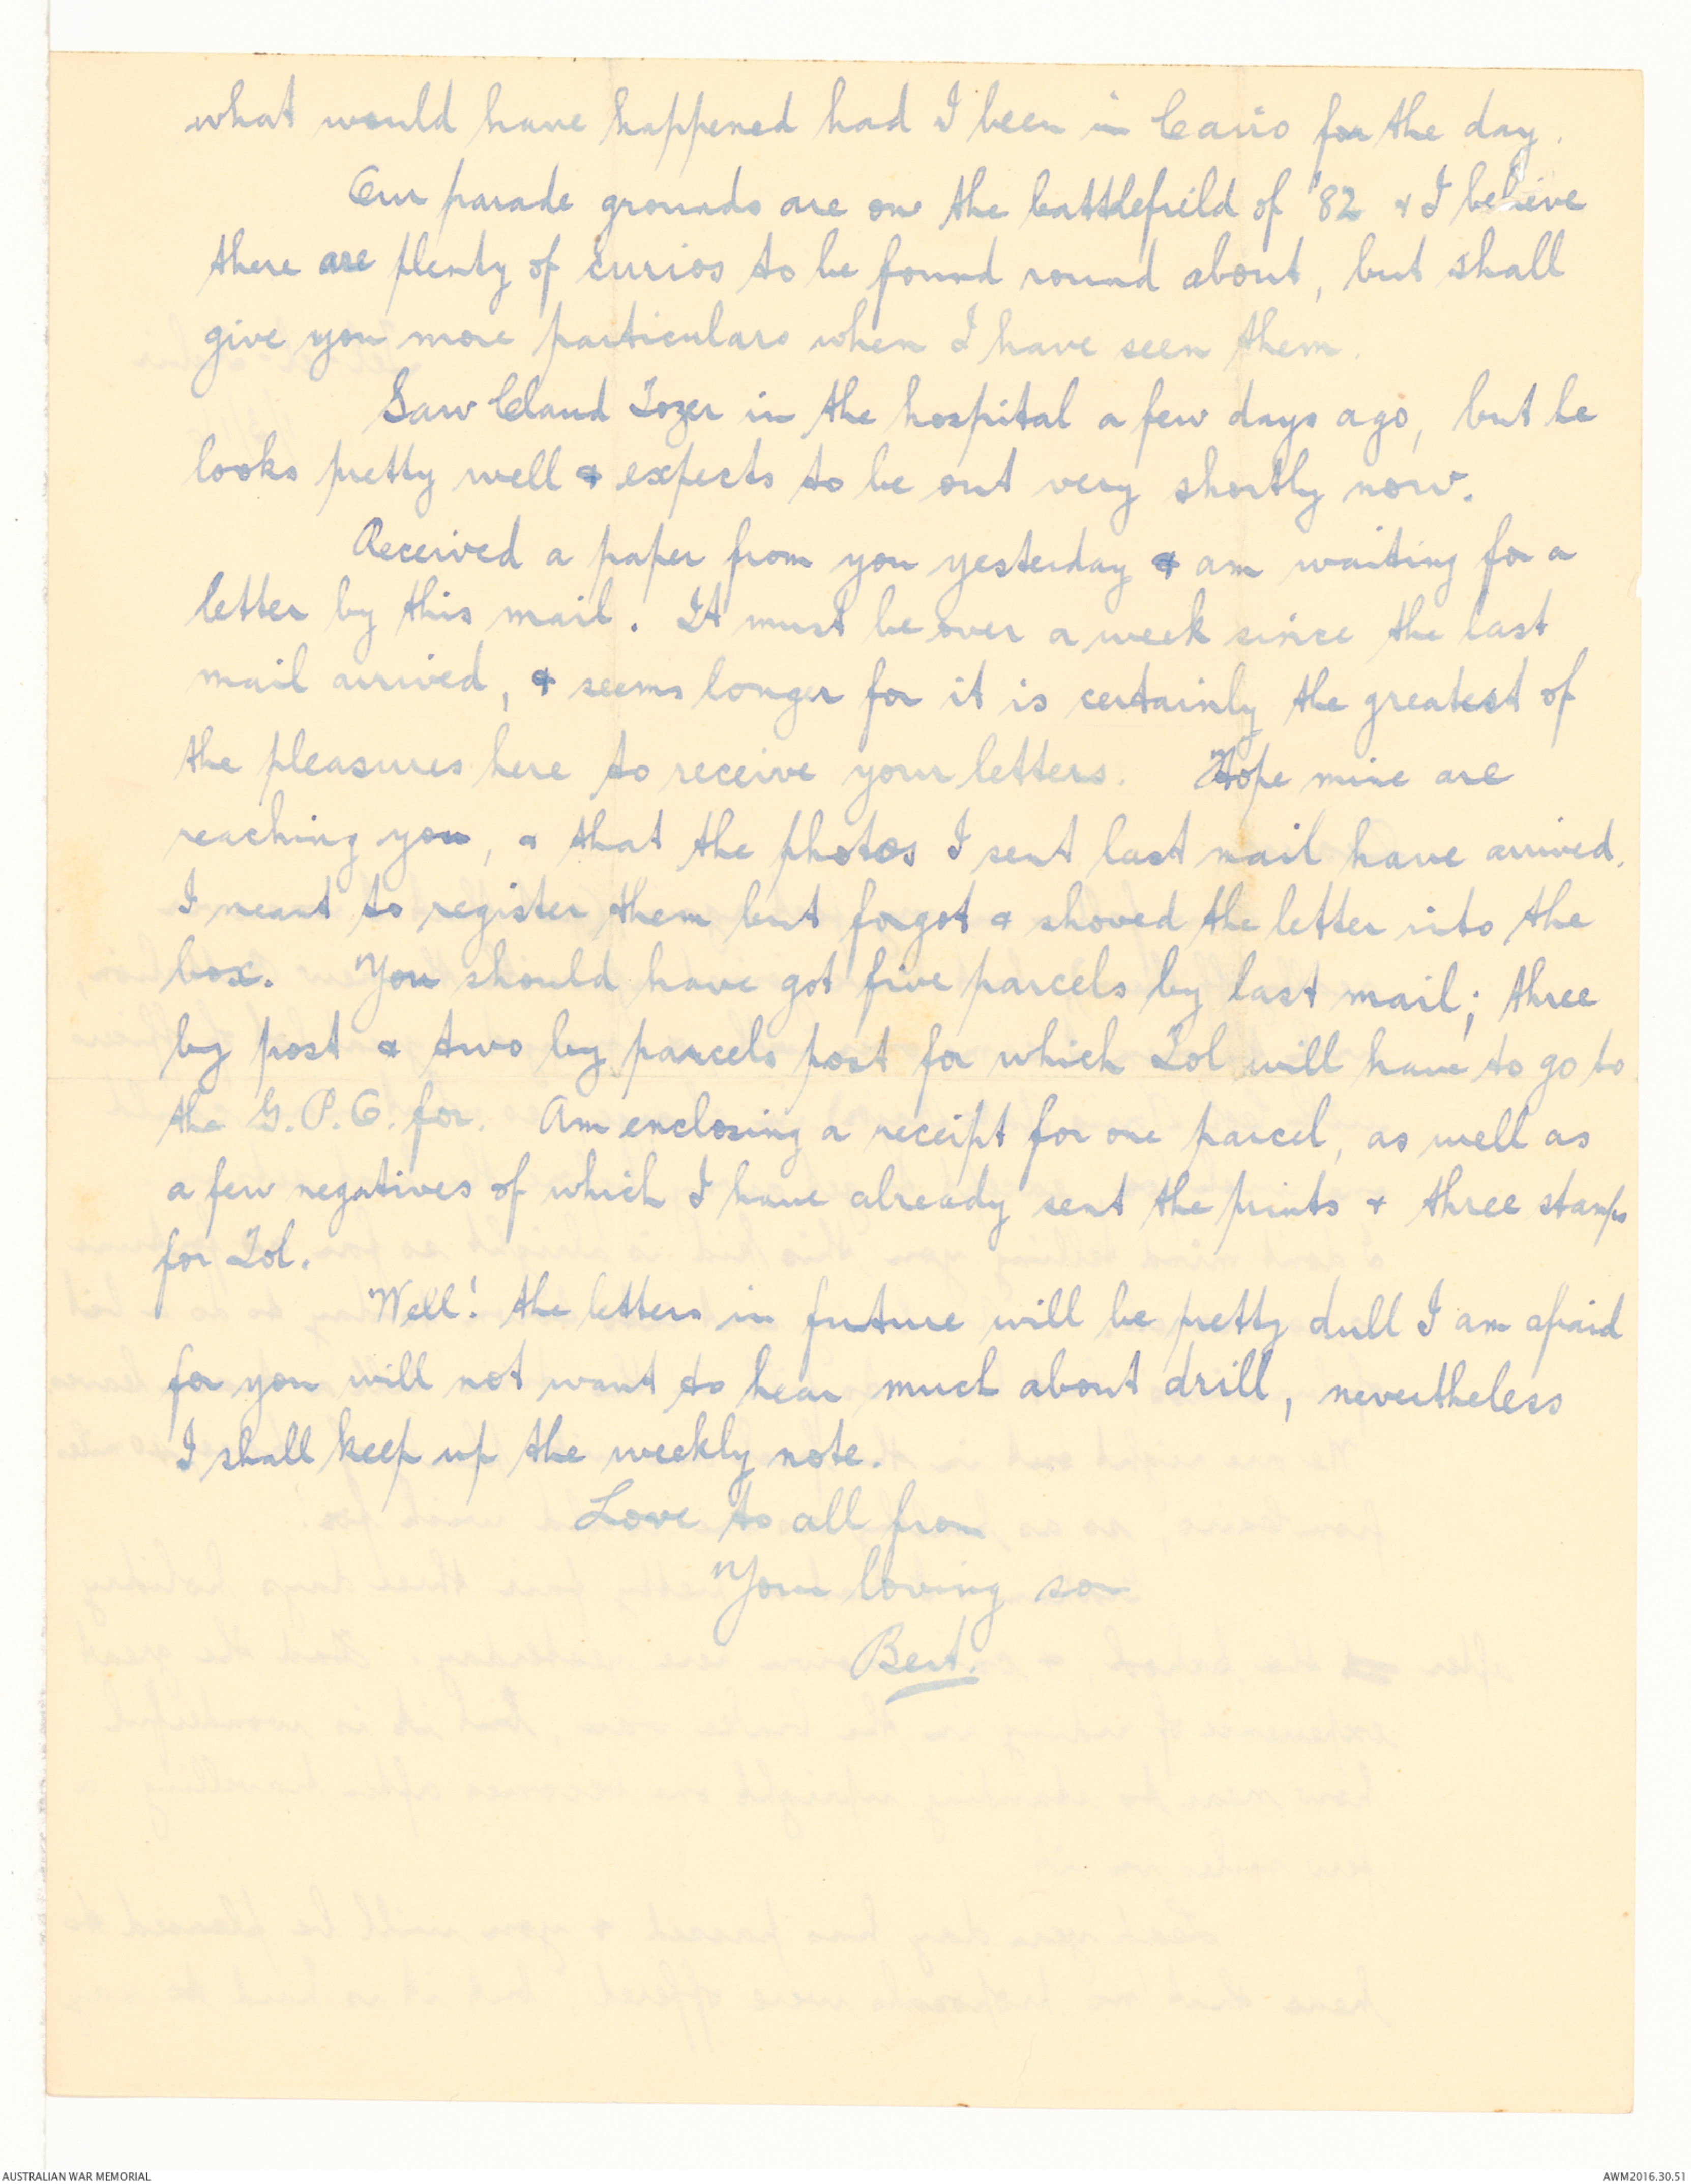 what would have happened had I been in Cairo for the day.
Our parade grounds are on the battlefeild of '82 & I believe
there are plenty of curios to be found round about, but shall
give you more particulars when I have seen them.
Saw Claud Tozer in the hospital a few days ago, but he
looks pretty well & expects to be out very shortly now.
Received a paper from you yesterday & am waiting for a
letter by this mail. It must be over a week since the last
mail arrived, & seems longer for it is certainly the greatest of
the pleasures here to receive your letters. Hope mine are
reaching you, & that the photos I sent last mail have arrived.
I meant to register them but forgot & shoved the letter into the
box. You should have got five parcels by last mail; three
by post & two by parcels post for which Lol will have to go to
the G.P.O. for. Am enclosing a receipt for one parcel, as well as
a few negatives of which I have already sent the prints & three stamps
for Lol.
Well! the letters in future will be pretty dull I am afraid
for you will not want to hear much about drill, nevertheless
I shall keep up the weekly note.
Love to all from
Your loving son
Bert.
AUSTRALIAN WAR MEMORIAL
AWM2016.30.51